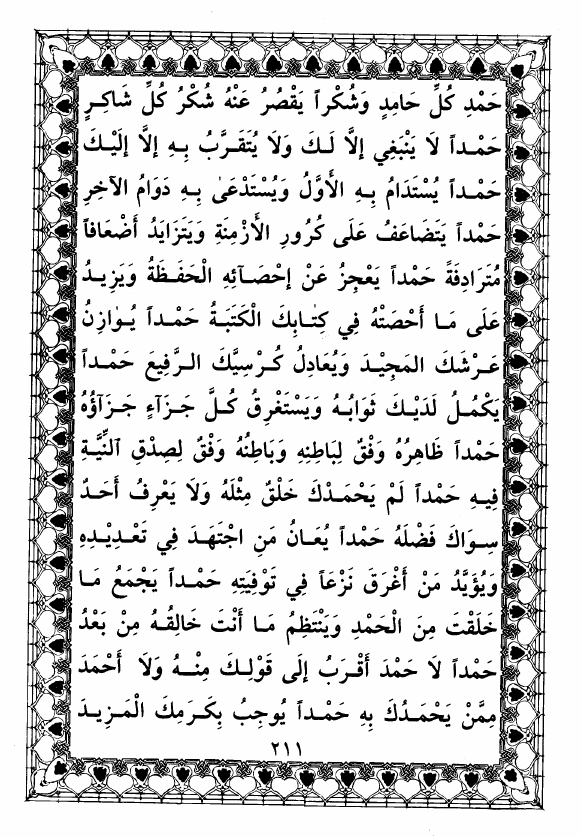 حَمْدِ كُلِّ حَامِدٍ وَشُكْراً يَقْصُرُ عَنْهُ شُكْرُ كُلِّ شَاكِرٍ
حَمْداً لَا يَنْبَغِي إلَّا لَكَ وَلَا يُتَقَرَّبُ بِهِ إلَّا إلَيْكَ
حَمْداً يُسْتَدَامُ بِهِ الأَوَّلُ وَيُسْتَدْعَىٰ بِهِ دَوَامُ الآخِرِ
حَمْداً يَتَضَاعَفُ عَلَى كُرُورِ الأَزْمِنَةِ وَيَتَزَايَدُ أَضْعَافاً
مُتَرَادِفَةً حَمْداً يَعْجِزُ عَنْ إحْصَآئِهِ الْحَفَظَةُ وَيَزِيدُ
عَلَى مَا أَحْصَتْهُ فِي كِتٰابِكَ الْكَتَبَةُ حَمْداً يُوَازِنُ
عَرْشَكَ المَجِيْدَ وَيُعَادِلُ كُرْسِيَّكَ الرَّفِيعَ حَمْداً
يَكْمُلُ لَدَيْكَ ثَوَابُهُ وَيَسْتَغْرِقُ كُلَّ جَزَآءٍ جَزَآؤُهُ
حَمْداً ظَاهِرُهُ وَفْقٌ لِبَاطِنِهِ وَبَاطِنُهُ وَفْقٌ لِصِدْقِ النِّيَّةِ
فِيهِ حَمْداً لَمْ يَحْمَدْكَ خَلْقٌ مِثْلَهُ وَلَا يَعْرِفُ أَحَدٌ
سِوَاكَ فَضْلَهُ حَمْداً يُعَانُ مَنِ اجْتَهَدَ فِي تَعْدِيْدِهِ
وَيُؤَيَّدُ مَنْ أَغْرَقَ نَزْعَاً فِي تَوْفِيَتِهِ حَمْداً يَجْمَعُ مَا
خَلَقْتَ مِنَ الْحَمْدِ وَيَنْتَظِمُ مَا أَنْتَ خَالِقُهُ مِنْ بَعْدُ
حَمْداً لَا حَمْدَ أَقْرَبُ إلَى قَوْلِكَ مِنْهُ وَلَا أَحْمَدَ
مِمَّنْ يَحْمَدُكَ بِهِ حَمْداً يُوجِبُ بِكَرَمِكَ الْمَزِيدَ
٢١١